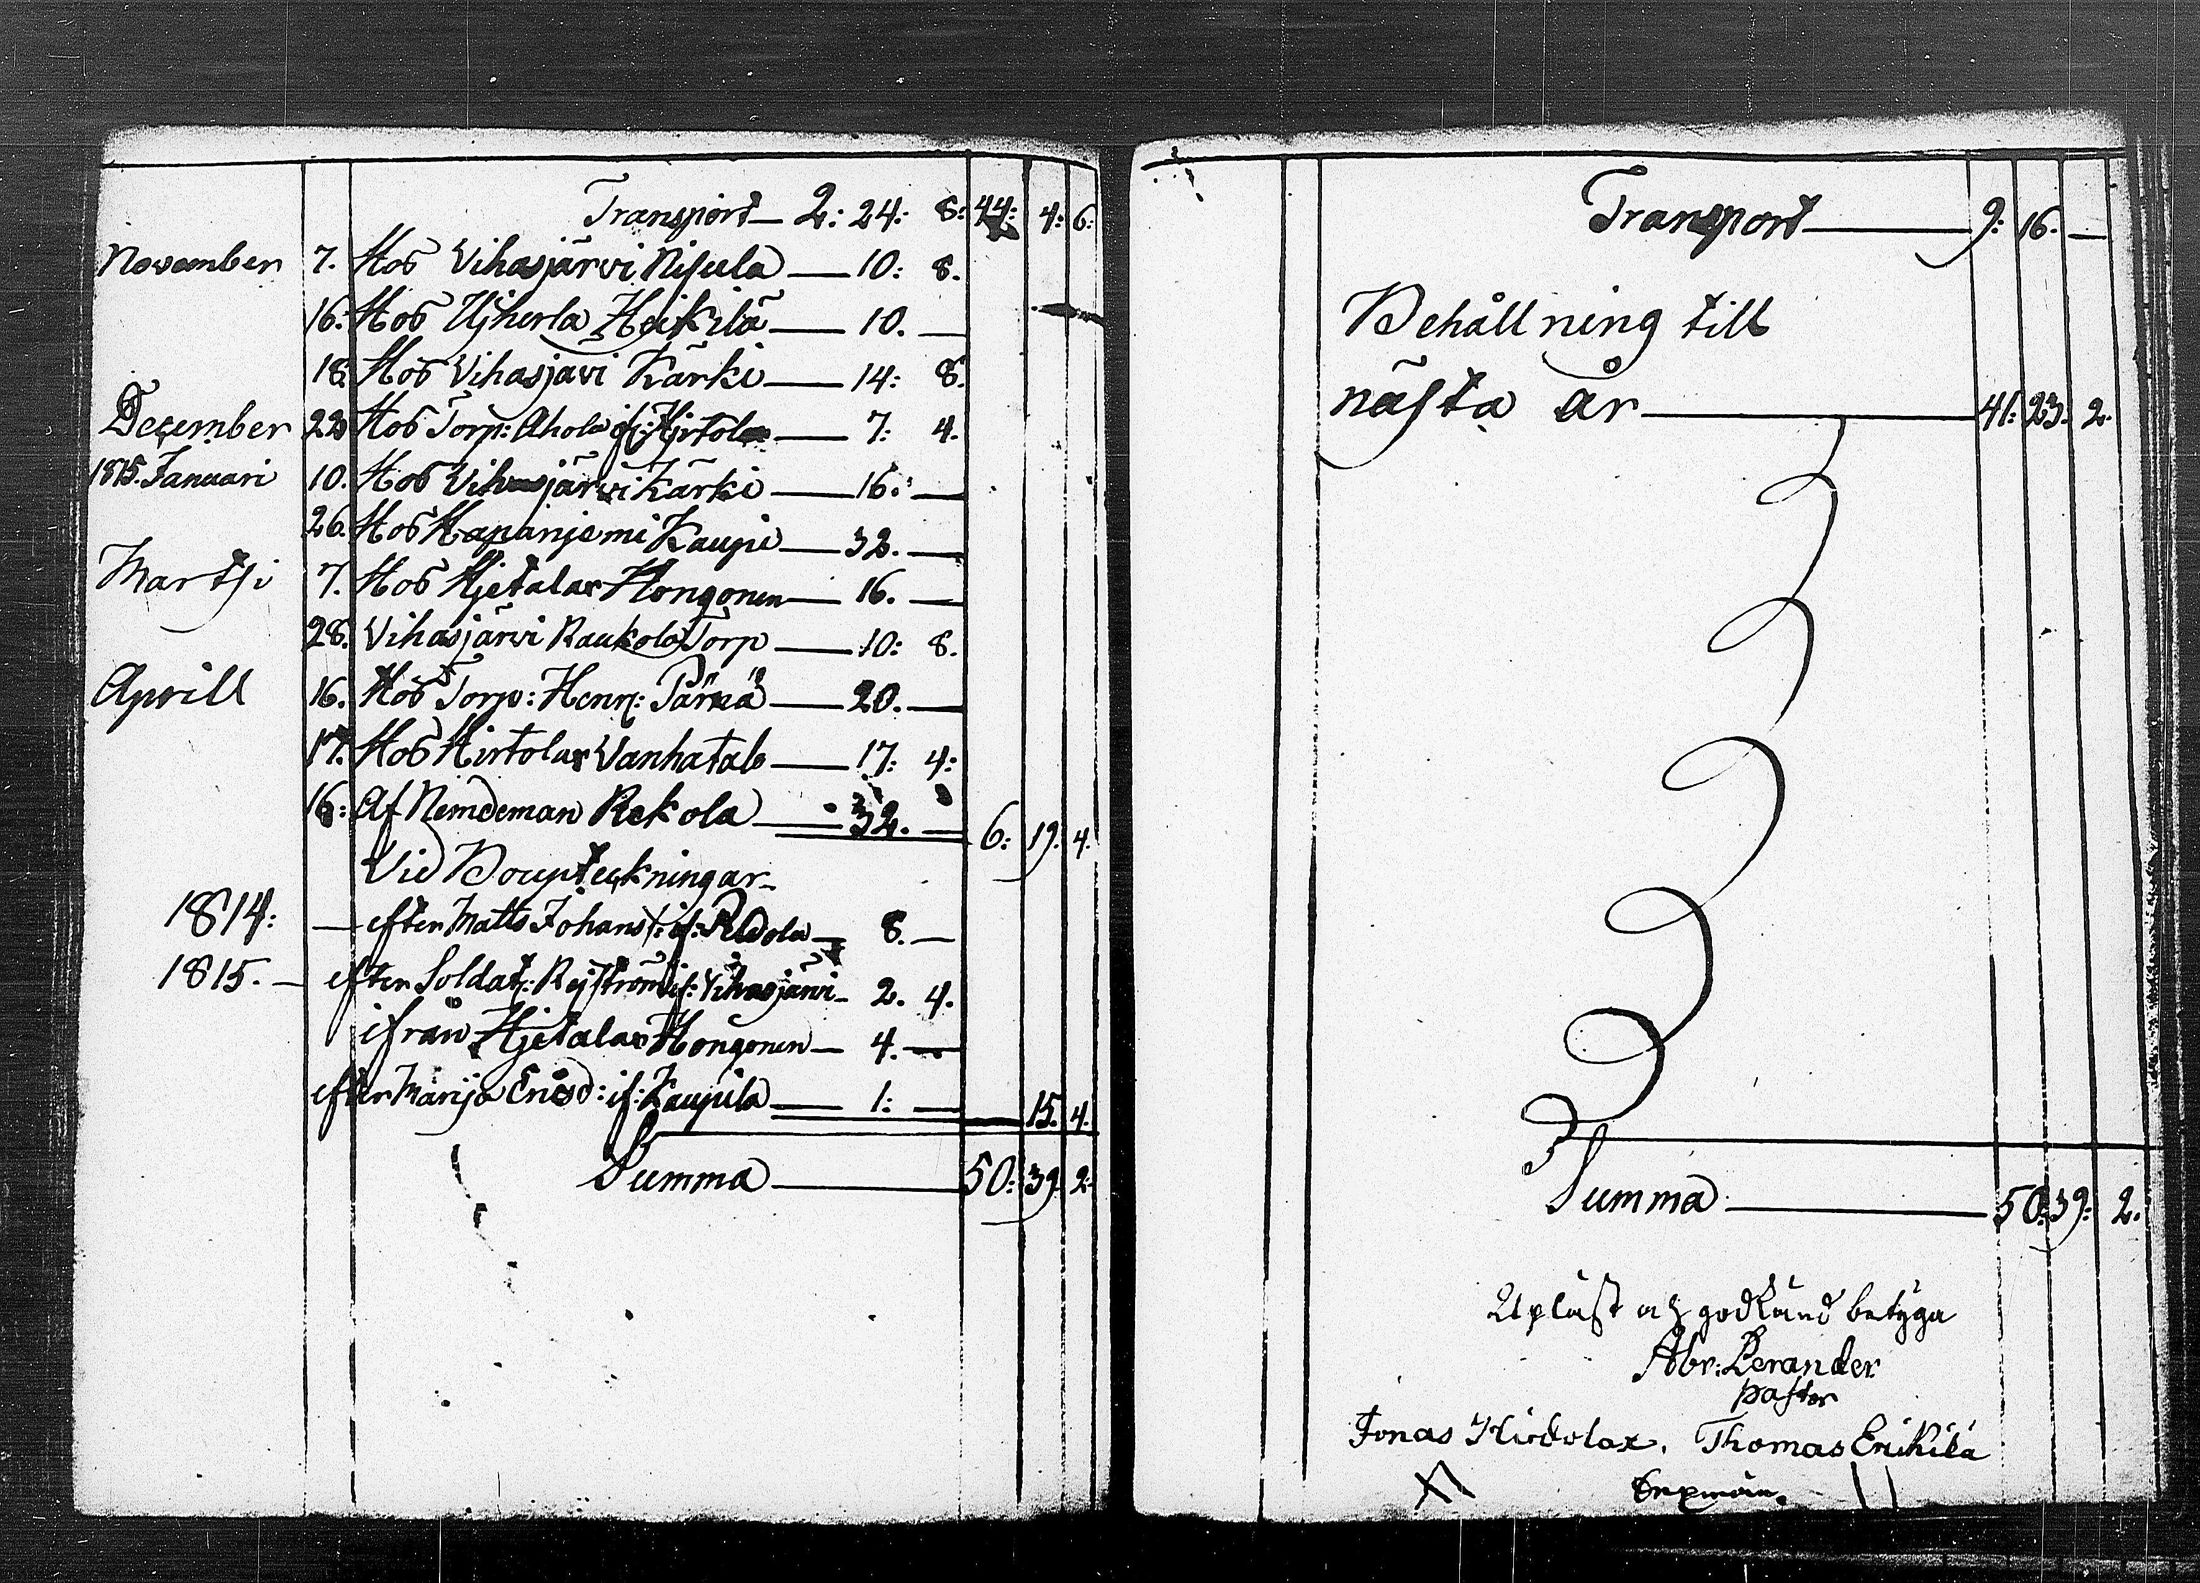 Transport — 2: 24: 8: 44: 4: 6:
November 7. Hos Vihasjärvi Nisula — 10: 8.
16. Hos Ujherla Heikilä — 10. —
18. Hos Vihasjavi Kärki — 14: 8.
December 22 Hos Torp: Ahola if: Hirtola — 7: 4.
1815. Januari 10. Hos Vihasjärvi Kärki — 16: —
26. Hos Hapanjemi Kaupi — 32. —
Martsi 7. Hos Hjetalax Hongonen — 16. —
28. Vihasjärvi Raukola Torp — 10: 8.
Aprill 16. Hos Torp: Henr: Pärnä — 20. —
17. Hos Hirtolax Vanhatalo — 17: 4:
18: Af Nemdeman Rekola — 32. — 6: 19. 4.
Vid Bouptekningar
1814: — efter Matts Johans: if: Peldola — 8. —
1815. — efter Soldat: Rejström if: Vihasjärvi — 2. 4.
ifrån Hjetalax Hongonen — 4. —
efter Marija Ericsd: if: Kaupila — 1: — 15. 4.
Summa — 50: 39. 2:
Transport — 9: 16. —
Behållning till
nästa år — 41: 23. 2.
Summa — 50: 39: 2.
Upläst och godkänd betyga
Abr: Lerander
pastor
Jonas Hirdolax. Thomas Erikilä
Sexmän.